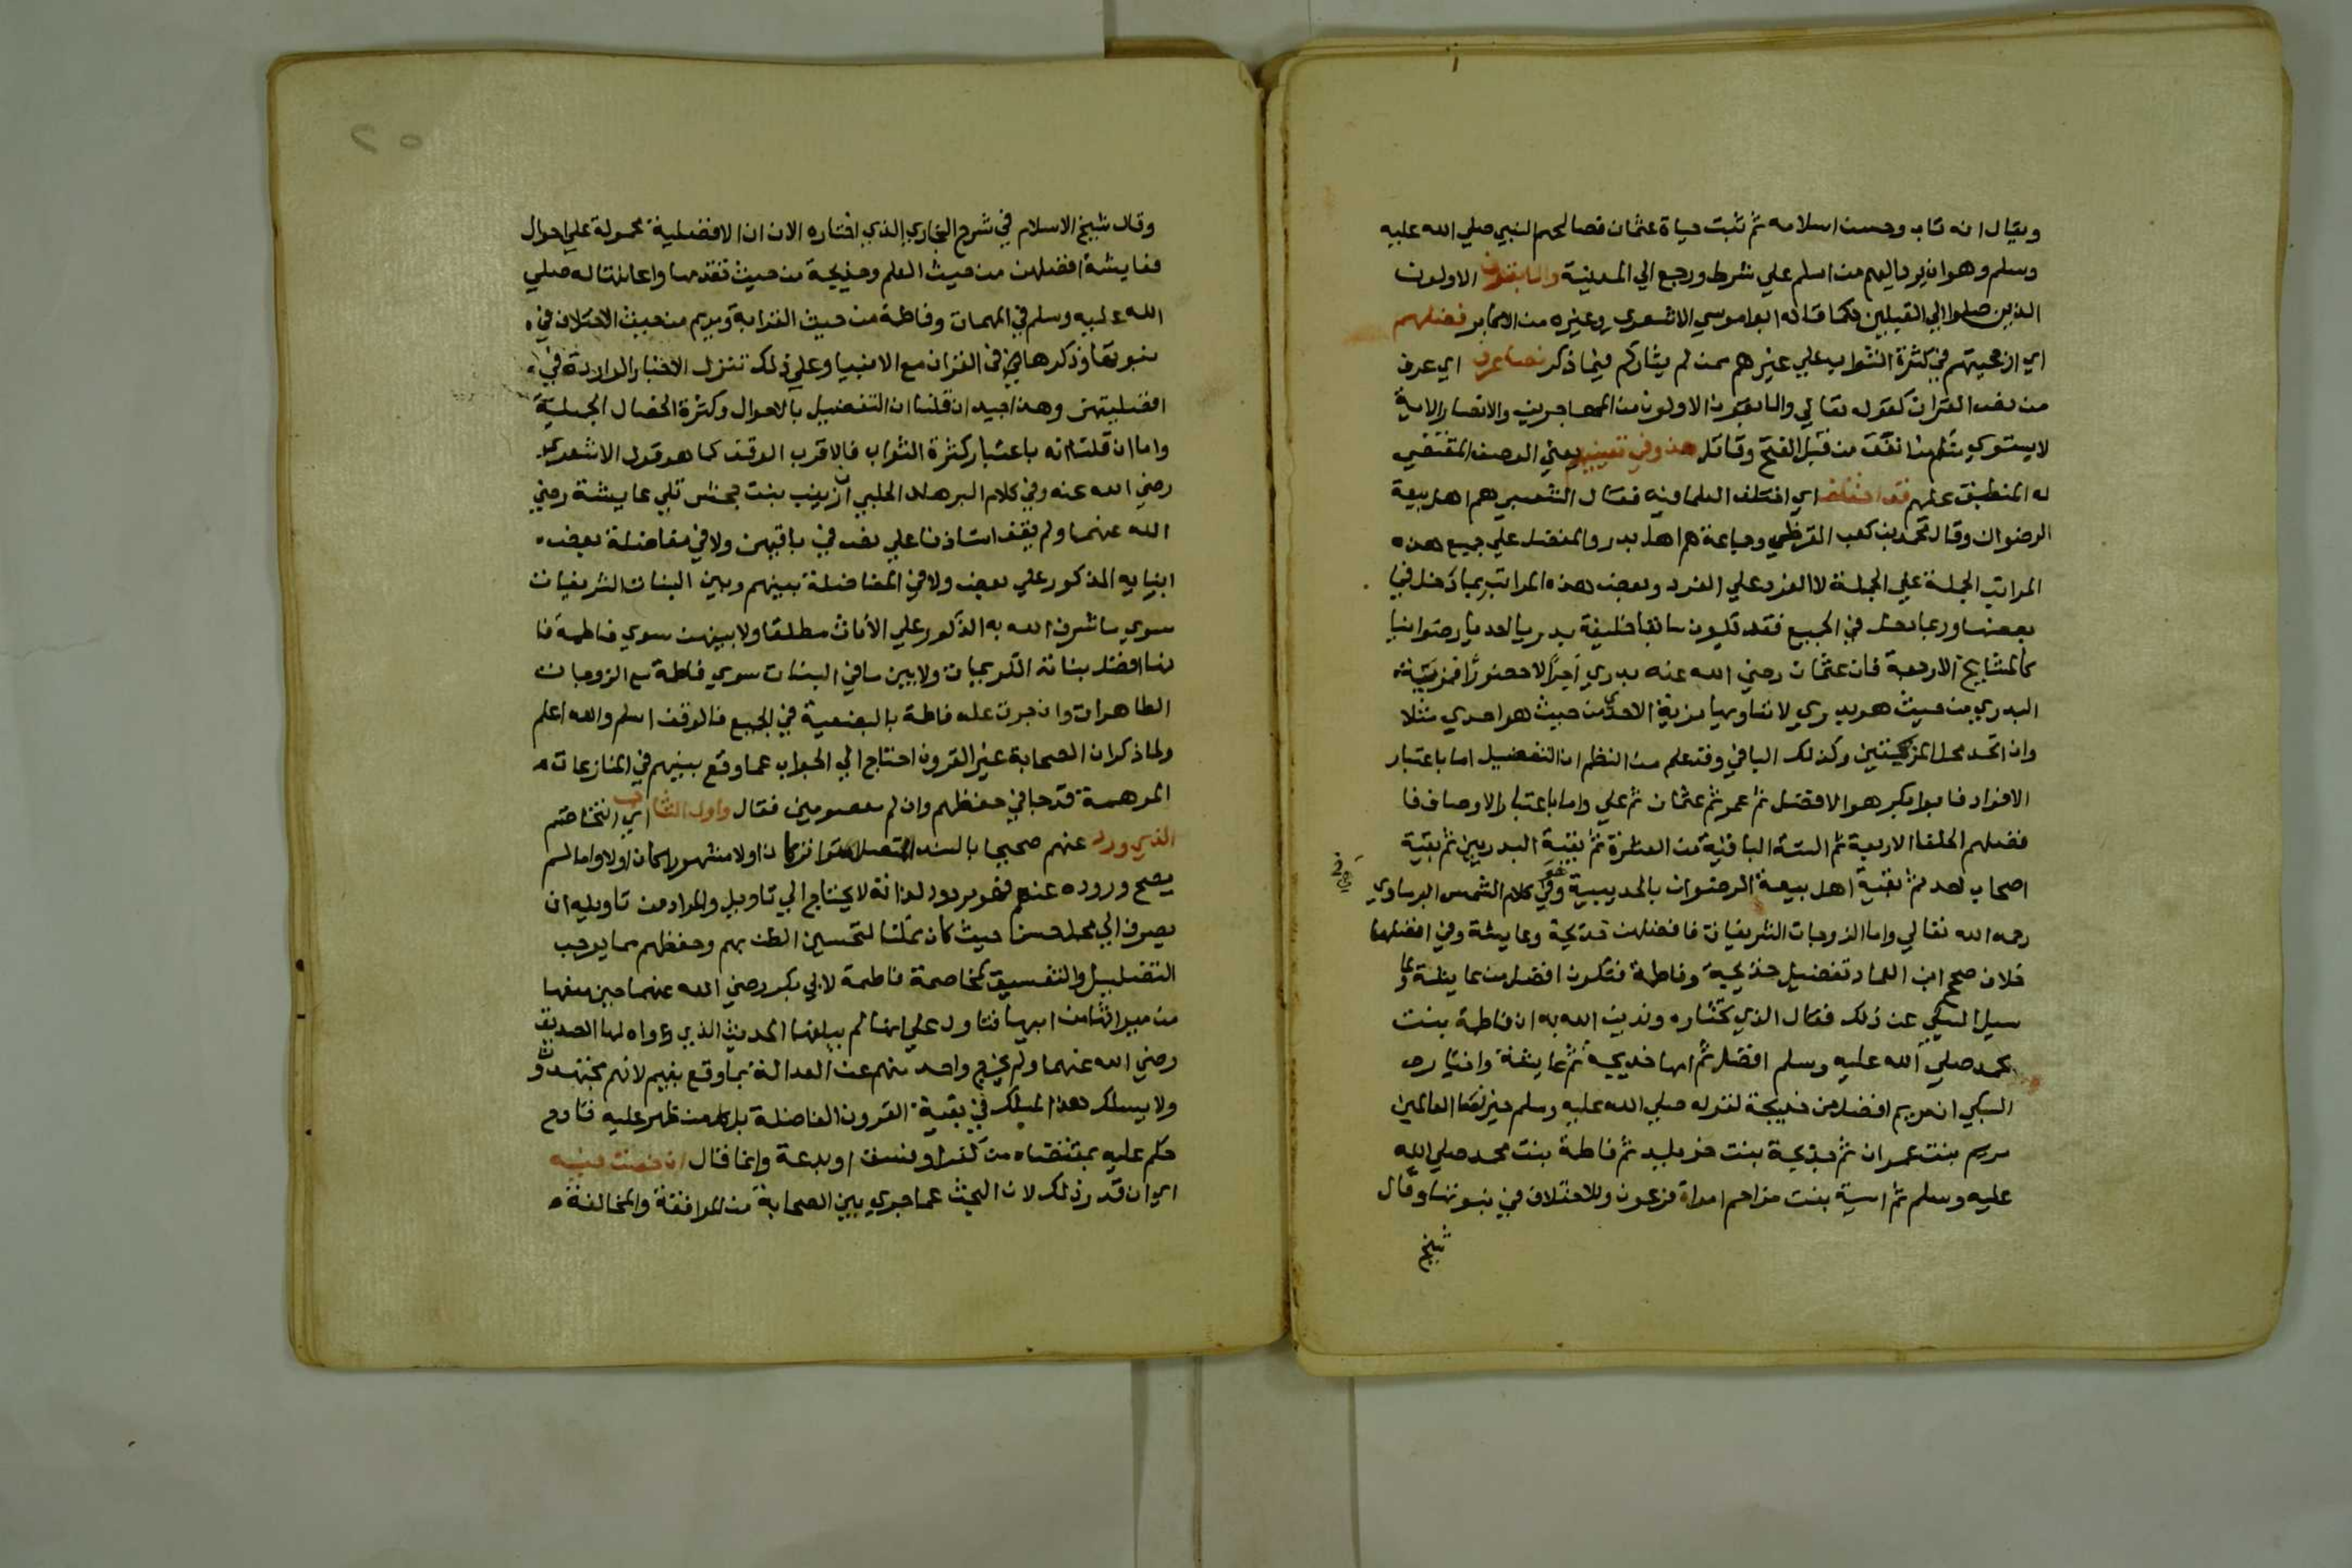 ويقال انه تاب وحسن اسلامه ثم ثبت حياة عثمان فصالحهم النبي صلي الله عليه
وسلم وهو ان يرد اليهم من اسلم علي شرط ورجع الي المدينة والسابقون الاولون
الذين صلوا الي القبلين كما قاله ابوا موسي الاشعري وغيره من الاكابر فضلهم
اي ارجحيتهم في كثرة الثواب علي غيرهم ممن لم يشاركهم فيما ذكر نصا عرف اي عرف
من نص القران كقوله تعالي والسابقون الاولون من المهاجرين والانصار الاية
لا يستوي منكم من انفق من قبل الفتح وقاتل هذ وفي تعيينهم يعني الوصف المقتضي
له المنطبق عليهم قد اختلف اي اختلف العلما فيه فقال الشعبي هم اهل بيعة
الرضوان وقال محمد بن كعب القرظي وجماعة هم اهل بدر والمفضل علي جميع هذه
المراتب الجملة علي الجملة لا الفرد علي الفرد وبعض هذه المراتب ربما دخل في
بعضها وربما دخل في الجميع فقد تكون سابقا خليفة بدريا احديا رضوانيا
كالمشايخ الاربعة فان عثمان رضي الله عنه بدري اجرا لا حضورا فمزية
البدري من حيث هو بدري لا تساويها مزية الاحدي من حيث هو احدي مثلا
وان اتحد محل المزيتين وكذلك الباقي وقد علم من النظم ان التفضيل اما باعتبار
الافراد فابوا بكر هو الافضل ثم عمر ثم عثمان ثم علي واما باعتبار الاوصاف فا
فضلهم الخلفا الاربعة ثم الستة الباقية من العشرة ثم بقية البدريين ثم بقية
اصحاب احد ثم بقية اهل بيعة الرضوان بالحديبية وفي كلام الشمس البرماوي
رحمه الله تعالي واما الزوجات الشريفات فافضلهن خديجة وعايشة وفي افضلهما
خلاف صحح ابن العماد تفضيل خديجة وفاطمة فتكون افضل من عايشة ولما
سيل السبكي عن ذلك فقال الذي نختاره وندين الله به ان فاطمة بنت
محمد صلي الله عليه وسلم افضل ثم امها خديجة ثم عايشة واختار
السبكي ان مريم افضل من خديجة لقوله صلي الله عليه وسلم خير نسا العالمين
مريم بنت عمران ثم خديجة بنت خويليد ثم فاطمة بنت محمد صلي الله
عليه وسلم ثم اسية بنت مزاحم امراة فرعون وللاختلاف في نبوتها وقال
شيخ
وقال شيخ الاسلام في شرح البخاري الذي اختاره الان ان الافضلية محمولة علي احوال
فعايشة افضلهن من حيث العلم وخديجة من حيث تقدمها واعانتها له صلي
الله عليه وسلم في المهمات وفاطمة من حيث القرابة ومريم من حيث الاختلاف في
نبوتها وذكرها في القران مع الانبيا وعلي ذلك تتنزل الاخبار الواردة في
افضليتهن وهذا جيد ان قلنا ان التفضيل بالاحوال وكثرة الخصال الجميلة
واما ان قلنا انه باعتبار كثرة الثواب فالاقرب الوقف كما هو قول الاشعري
رضي الله عنه وفي كلام البرهان الحلبي ان زينب بنت جحش تلي عايشة رضي
الله عنهما ولم يقف استاذنا علي نص في باقيهن ولا في مفاضلة بعض
ابنايه المذكور علي بعض ولا في المفاضلة بينهم وبين البنات الشريفات
سوي ما شرف الله به الذكور علي الاناث مطلقا ولا بينهن سوي فاطمة فا
نها افضل بناته الكريمات ولا بين باقي البنات سوي فاطمة مع الزوجات
الطاهرات وان جرت علة فاطمة بالبضعية في الجميع فالوقف اسلم والله اعلم
ولما ذكر ان الصحابة خير القرون احتاج الي الجواب عما وقع بينهم في المنازعات
الموهمة قدحا في حفظهم وان لم معصومين فقال واول التشاجر اي التخاصم
الذي ورد عنهم صحيحا بالسند المتصل متواترا كان اولا مشهورا كان اولا واما لم
يصح وروده عنهم فهو مردود لذاته لا يحتاج الي تاويل والمراد من تاويله ان
يصرف الي محمل حسن حيث كان ممكنا لتحسين الظن بهم وحفظهم مما يوجب
التضليل والتفسيق كمخاصمة فاطمة لابي بكر رضي الله عنهما حين منعها
من ميراثها من ابيها فتاول علي انها لم يبلغها الحديث الذي رواه لها الصديق
رضي الله عنهما ولم يخرج واحد منهم عن العدالة بما وقع بينهم لانهم مجتهدون
ولا يسلك هذا المسلك في بقية القرون الفاضلة بل كل من ظهر عليه قادح
حكم عليه بمقتضاه من كفر او فسق او بدعة وانما قال ان خضت فيه
اي ان قدر ذلك لان البحث عما جري بين الصحابة من الموافقة والمخالفة